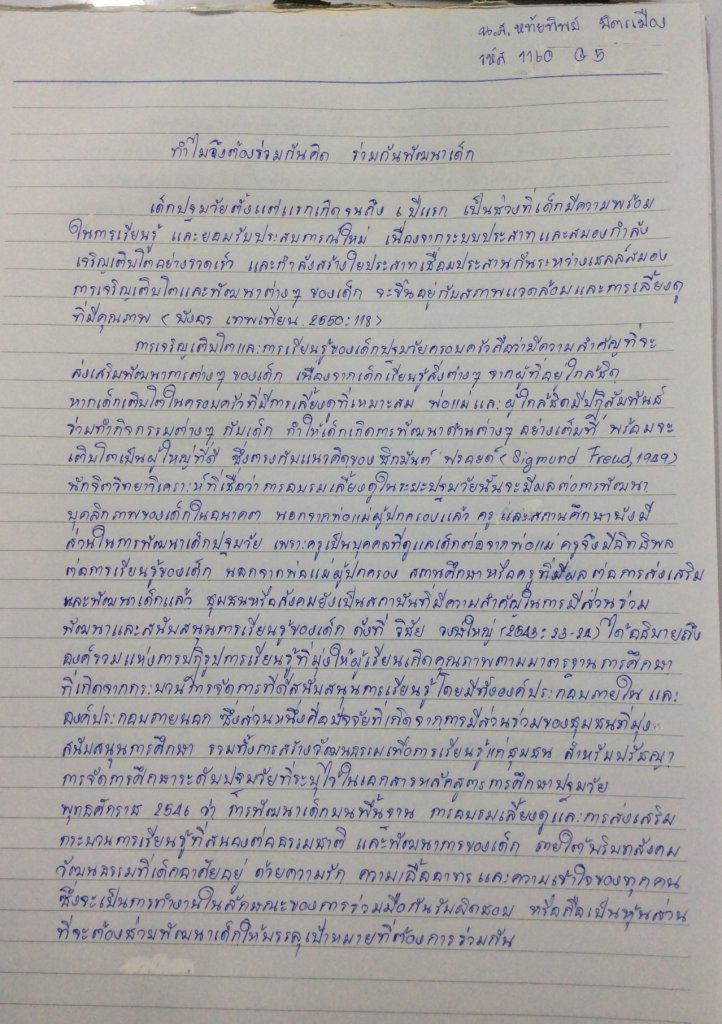 น.ส. หทัยทิพย์ มิตรเมือง
รหัส 1160 G5
ทำไมจึงต้องร่วมกันคิด ร่วมกันพัฒนาเด็ก
เด็กปฐมวัยตั้งแต่แรกเกิดจนถึง 6 ปีแรก เป็นช่วงที่เด็กมีความพร้อม
ในการเรียนรู้ และยอมรับประสบการณ์ใหม่ เนื่องจากระบบประสาทและสมองกำลัง
เจริญเติบโตอย่างรวดเร็ว และกำลังสร้างใยประสาทเชื่อมประสานกันระหว่างเซลล์สมอง
การเจริญเติบโตและพัฒนาต่างๆ ของเด็ก จะขึ้นอยู่กับสภาพแวดล้อมและการเลี้ยงดู
ที่มีคุณภาพ ( พังคร เทพเทียน, 2550: 118 )
การเจริญเติบโตและการเรียนรู้ของเด็กปฐมวัยครอบครัวถือว่ามีความสำคัญที่จะ
ส่งเสริมพัฒนาการต่างๆ ของเด็ก เนื่องจากเด็กเรียนรู้สิ่งต่างๆ จากผู้ที่อยู่ใกล้ชิด
หากเด็กเติบโตในครอบครัวที่มีการเลี้ยงดูที่เหมาะสม พ่อแม่และผู้ใกล้ชิดมีปฏิสัมพันธ์
ร่วมทำกิจกรรมต่างๆ กับเด็ก ทำให้เด็กเกิดการพัฒนาด้านต่างๆ อย่างเต็มที่ พร้อมจะ
เติบโตเป็นผู้ใหญ่ที่ดี ซึ่งตรงกับแนวคิดของซิกมันต์ ฟรอยด์ ( Sigmund Freud, 1949)
นักจิตวิทยาวิเคราะห์ที่เชื่อว่าการอบรมเลี้ยงดูในระยะปฐมวัยนั้นจะมีผลต่อการพัฒนา
บุคลิกภาพของเด็กในอนาคต นอกจากพ่อแม่ผู้ปกครองแล้ว ครู และสถานศึกษายังมี
ส่วนในการพัฒนาเด็กปฐมวัย เพราะครูเป็นบุคคลที่ดูแลเด็กต่อจากพ่อแม่ ครูจึงมีอิทธิพล
ต่อการเรียนรู้ของเด็ก นอกจากพ่อแม่ผู้ปกครอง สถานศึกษาหรือครูที่มีผลต่อการส่งเสริม
และพัฒนาเด็กแล้ว ชุมชนหรือสังคมยังเป็นสถาบันที่มีความสำคัญในการมีส่วนร่วม
พัฒนาและสนับสนุนการเรียนรู้ของเด็ก ดังที่ วิชัย วงษ์ใหญ่ (2543: 23-24) ได้อธิบายถึง
องค์รวมแห่งการปฏิรูปการเรียนรู้ที่มุ่งให้ผู้เรียนเกิดคุณภาพตามมาตรฐานการศึกษา
ที่เกิดจากกระบวนวิธีการจัดการที่ดีสนับสนุนการเรียนรู้ โดยมีทั้งองค์ประกอบภายใน และ
องค์ประกอบภายนอก ซึ่งส่วนหนึ่งคือปัจจัยที่เกิดจากการมีส่วนร่วมของชุมชนที่มุ่ง
สนับสนุนการศึกษา รวมทั้งการสร้างวัฒนธรรมเพื่อการเรียนรู้แก่ชุมชน สำหรับปรัชญา
การจัดการศึกษาระดับปฐมวัยที่ระบุไว้ในเอกสารหลักสูตรการศึกษาปฐมวัย
พุทธศักราช 2546 ว่า การพัฒนาเด็กบนพื้นฐาน การอบรมเลี้ยงดูและการส่งเสริม
กระบวนการเรียนรู้ที่สนองต่อธรรมชาติ และพัฒนาการของเด็ก ภายใต้บริบทสังคม
วัฒนธรรมที่เด็กอาศัยอยู่ ด้วยความรัก ความเอื้ออาทร และความเข้าใจของทุกคน
ซึ่งจะเป็นการทำงานในลักษณะของการร่วมมือกันรับผิดชอบ หรือถือเป็นหุ้นส่วน
ที่จะต้องช่วยพัฒนาเด็กให้บรรลุเป้าหมายที่ต้องการร่วมกัน